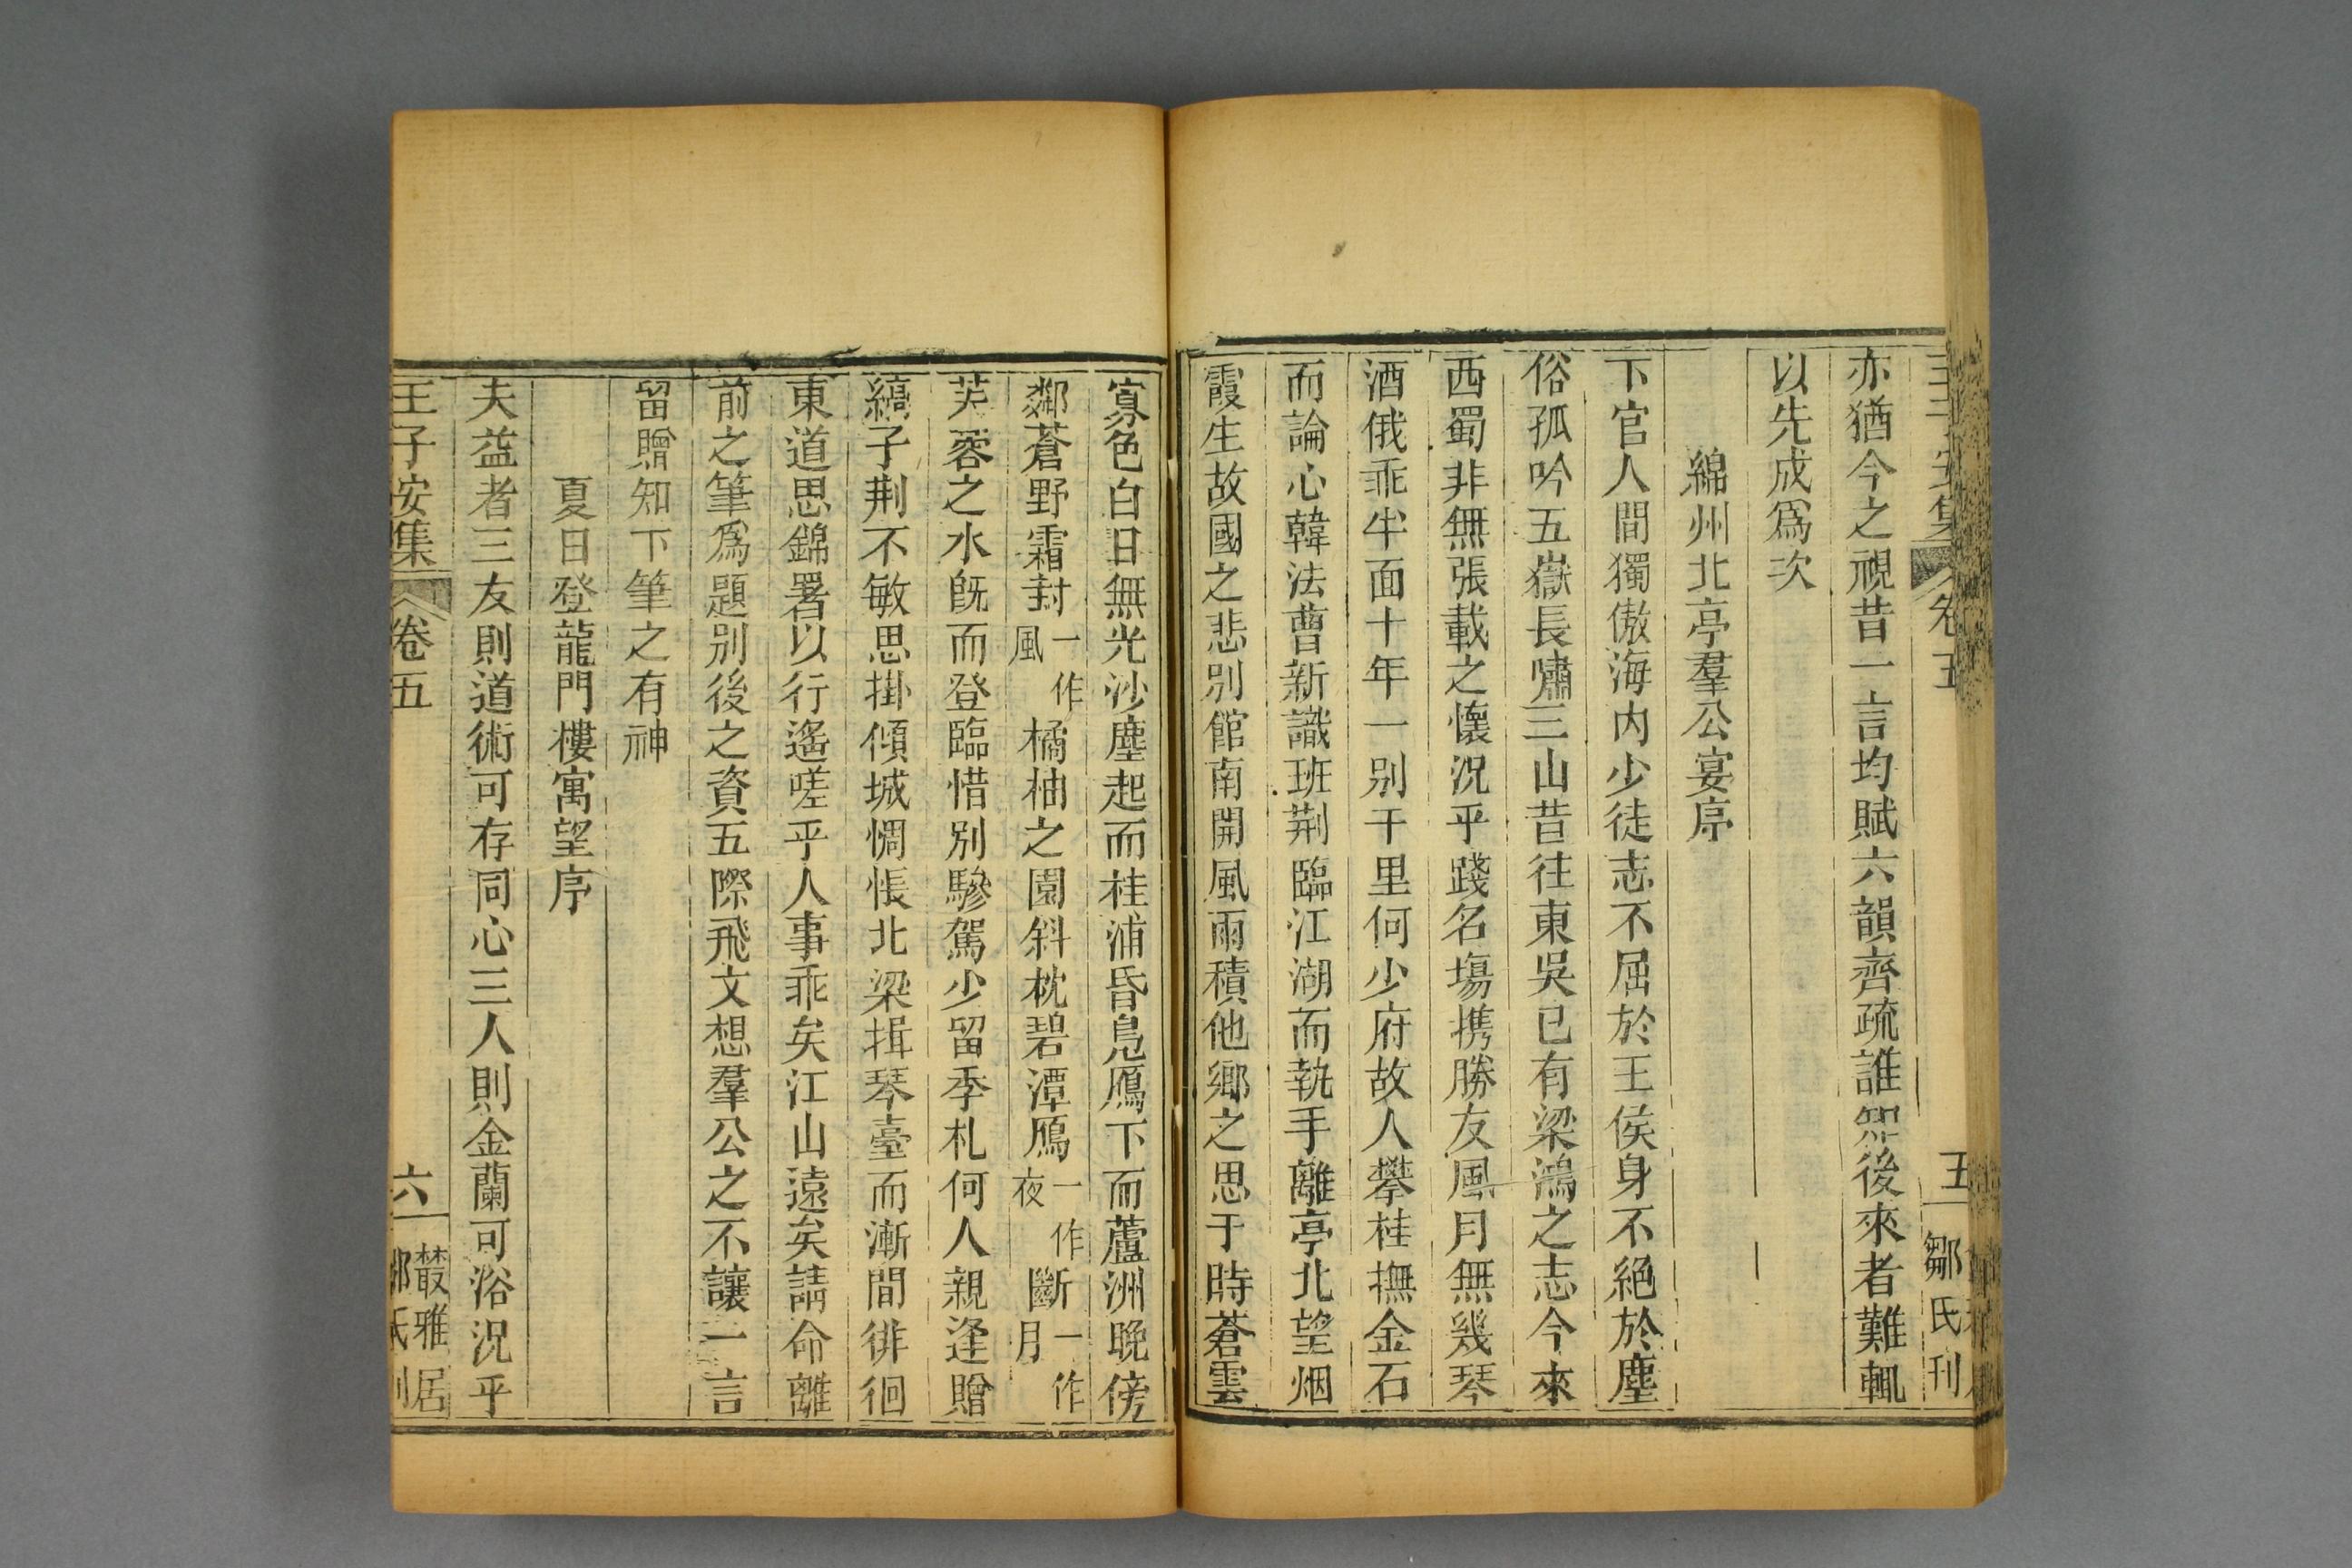 亦猶今之視昔一言均賦六韻齊疏誰知後來者難輒
以先成爲次
綿州北亭羣公宴序
下官人間獨傲海内少徒志不屈於王侯身不絕於塵
俗孤吟五嶽長嘯三山昔往東吳已有梁鴻之志今來
西蜀非無張載之懷況乎踐名塲携勝友風月無幾琴
酒俄乖半面十年一别千里何少府故人攀桂撫金石
而論心韓法曹新識班荆臨江湖而執手離亭北望烟
霞生故國之悲别館南開風雨積他鄉之思于時蒼雲
寡色白日無光沙塵起而桂浦昏鳧鴈下而蘆洲晚傍
鄰蒼野霜封一作風橘柚之園斜枕碧潭鴈一作夜斷一作月
芙蓉之水旣而登臨惜别驂駕少留季札何人親逢贈
縞子荆不敏思掛傾城惆悵北梁揖琴臺而漸間徘徊
東道思錦署以行遙嗟乎人事乖矣江山遠矣請命離
前之筆爲題别後之資五際飛文想羣公之不讓一言
留贈知下筆之有神
夏日登龍門樓寓望序
夫益者三友則道術可存同心三人則金蘭可浴況乎
王子安集
卷五
六
叢雅居
鄒氏刊
王子安集
卷五
五
鄒氏刊